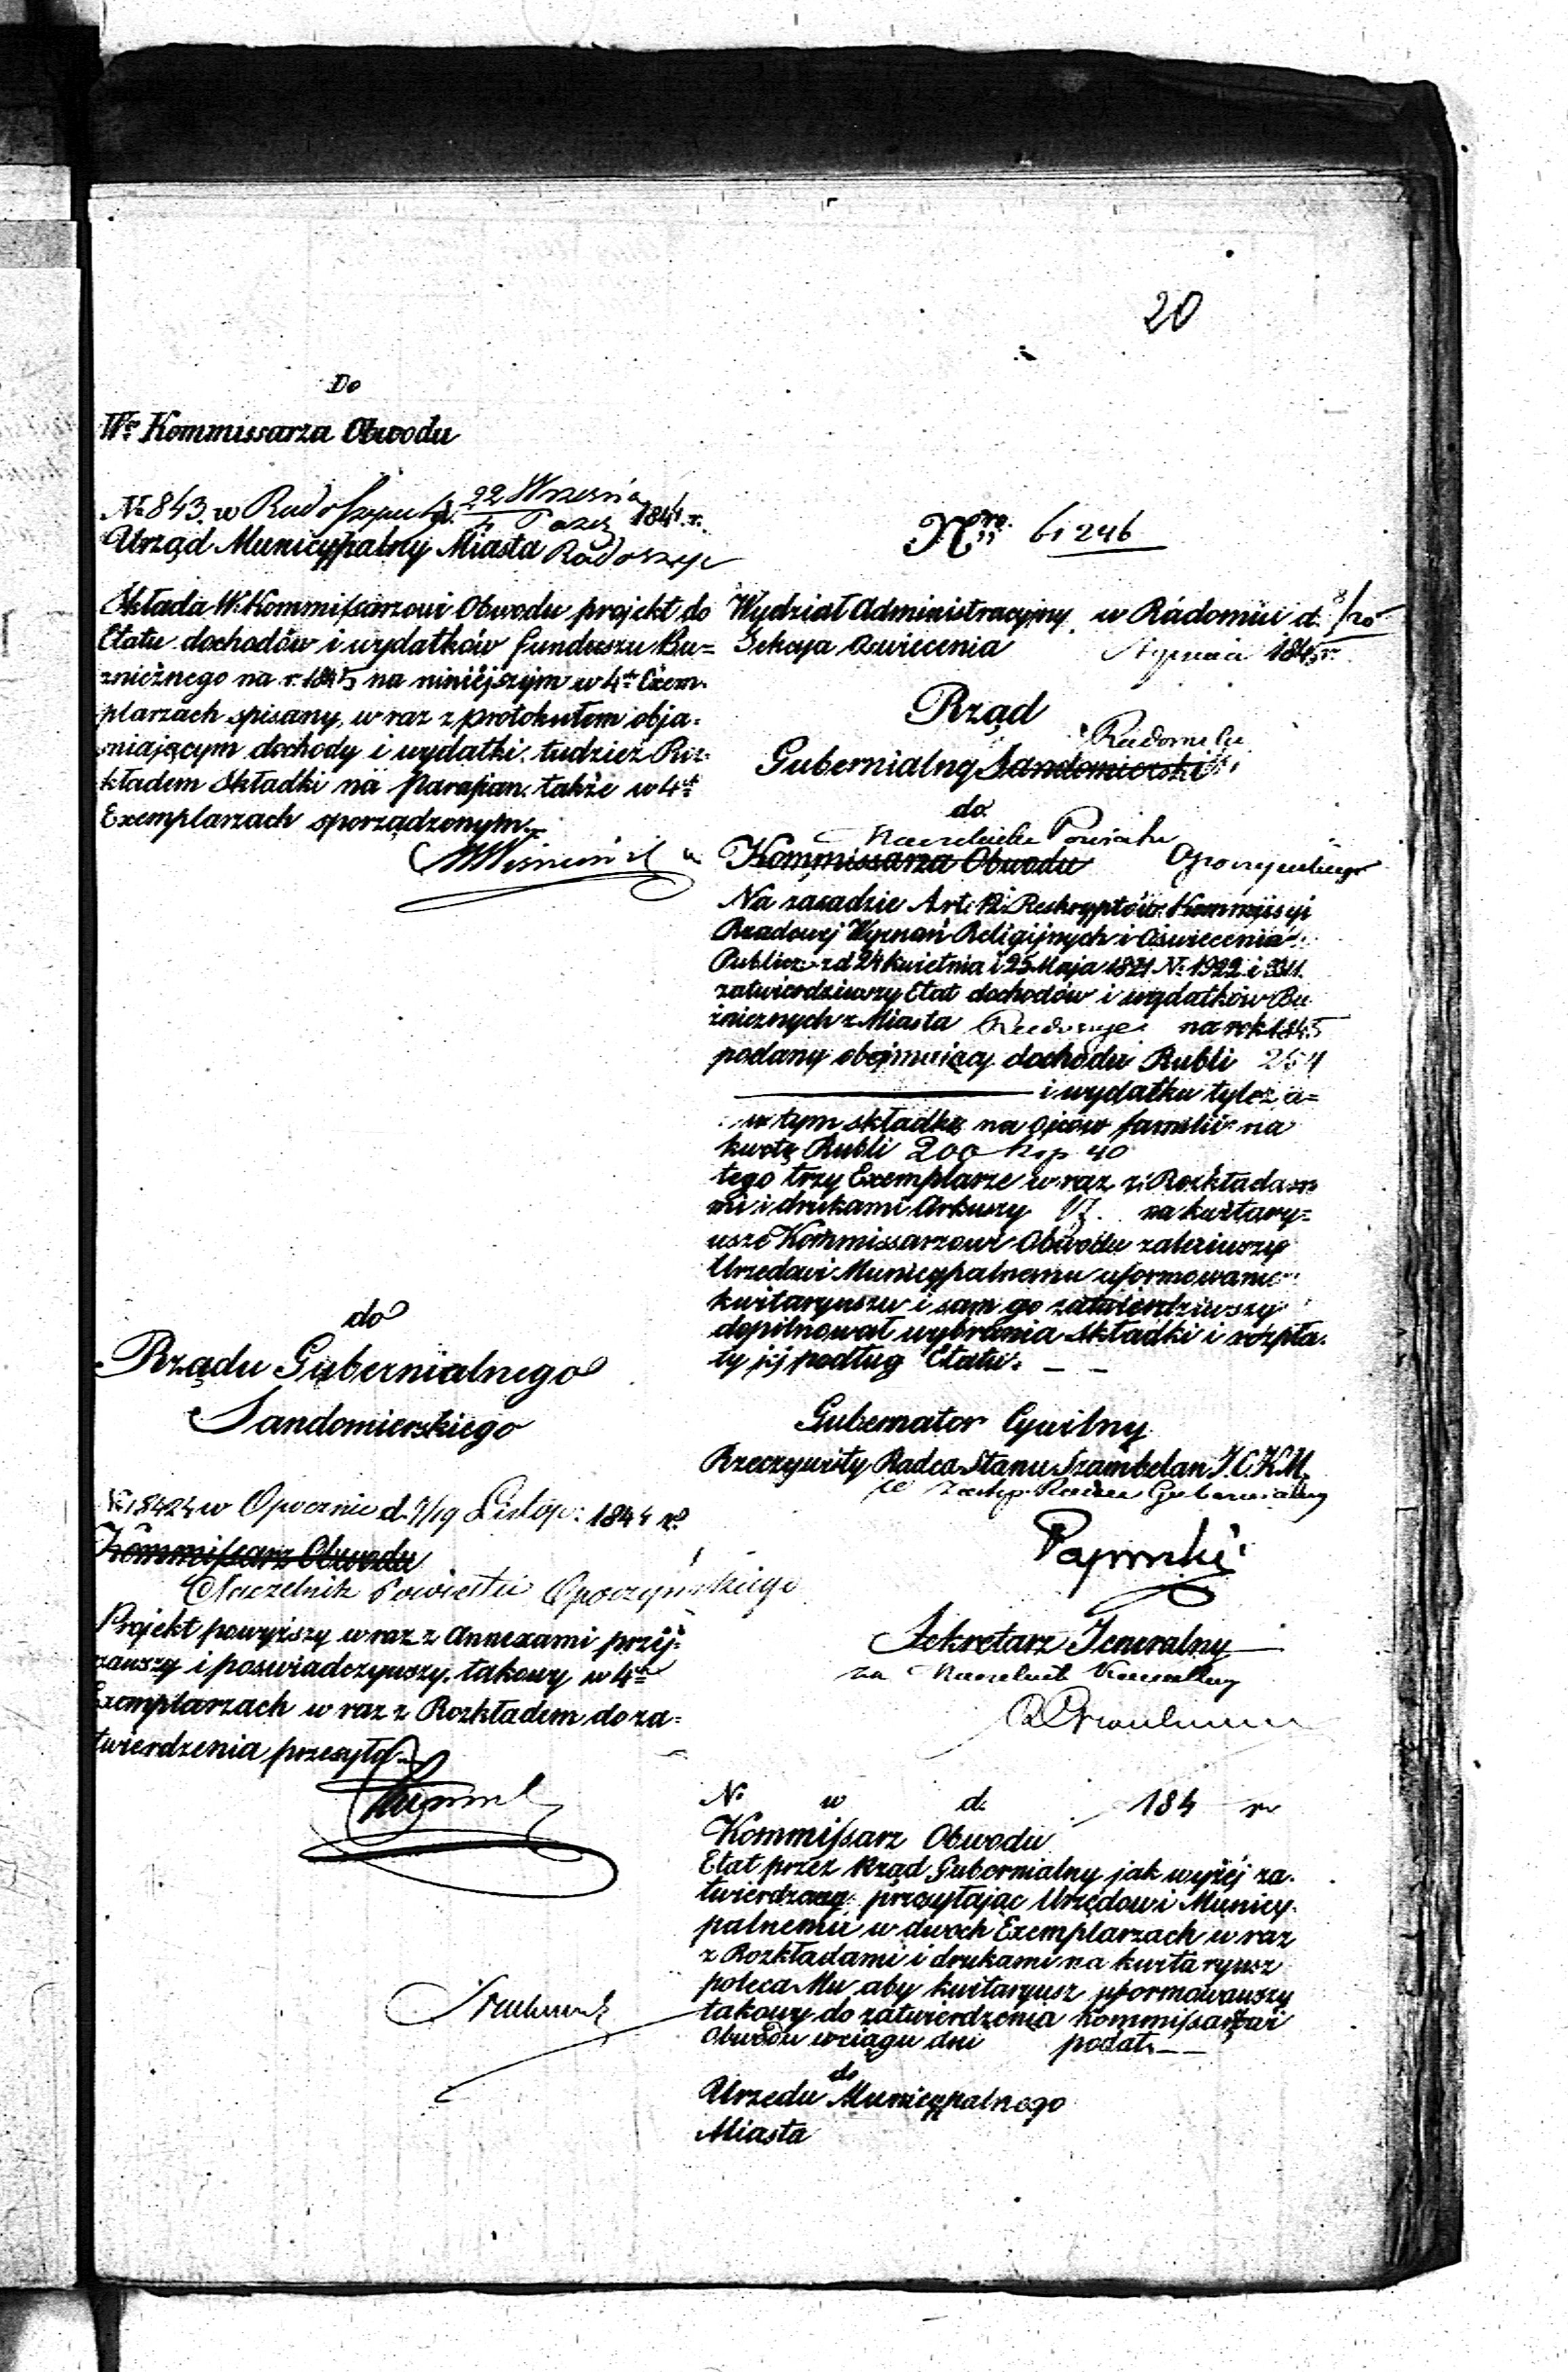 20
Do
Wo Kommissarza Obwodu
No 843. w Radoszycach d. 22 Września 1844 r.
4 Paźdz
Urząd Municypalny Miasta Radoszyc
Składa W. Kommissarzowi Obwodu projekt do
Etatu dochodów i wydatków funduszu Bu=
znicznego na r. 1845 na niniejszym w 4ch Exem.
plarzach spisany, wraz z protokułem obja.
sniającym dochody i wydatki, tudzież Roz=
kładem Składki na Parafian, także w 4ch
Exemplarzach sporządzonym.
do
Rządu Gubernialnego
Sandomierskiego
No 18424 w Opocznie d. 7/19 Listop: 1844 r.
Kommissarz Obwodu
Naczelnik Powiatu Opoczyńskiego
Projekt powyższy wraz z Annexami przej=
rzawszy i poswiadczywszy, takowy w 4ch
Exemplarzach w raz z Rozkładem do za=
twierdzenia przesyła.
Nro 61246
Wydział Administracyjny w Radomiu d. 8/20
Sekcya Oswiecenia Stycznia 1845 r.
Rząd
Radomski
Gubernialny Sandomierski
do
Naczelnika Powiatu
Kommissarza Obwodu Opoczyńskiego
Na zasadzie Art. 12. Reskryptów Kommissyi
Rządowej Wyznań Religijnych i Oswiecenia
Publicz: z d 24 Kwietnia i 25 Maja 1821 No 1922 i 3311.
zatwierdziwszy Etat dochodów i wydatków Bu
żnicznych z Miasta Radoszyc na rok 1845
podany obejmujący dochodu Rubli 254
i wydatku tyleż a=
w tym składkę na Ojców familii na
kwotę Rubli 200 kop 40
tego trzy Exemplarze w raz z Rozkłada
mi i drukami Arkuszy na kwitary=
usze Kommissarzowi Obwodu zaleciwszy
Urzędowi Municypalnemu uformowanie
kwitaryuszu i sam go zatwierdziwszy
dopilnował wybrania składki i rozpła.
ty jej podług Etatu.
Gubernator Cywilny
Rzeczywisty Radca Stanu Szambelan J. C. K. M.
w Zastęp. Radca Gubernialny
Sekretarz Jeneralny
za Naczelnik Kancellaryi
No w d. 184 r.
Kommissarz Obwodu
Etat przez Rząd Gubernialny jak wyżej za.
twierdzony przesyłając Urzędowi Municy.
palnemu w dwoch Exemplarzach w raz
z Rozkładami i drukami na kwitaryusz
poleca Mu aby kwitaryusz uformowawszy
takowy do zatwierdzenia Kommissarzowi
Obwodu wciągu dni podał.
do
Urzędu Municypalnego
Miasta